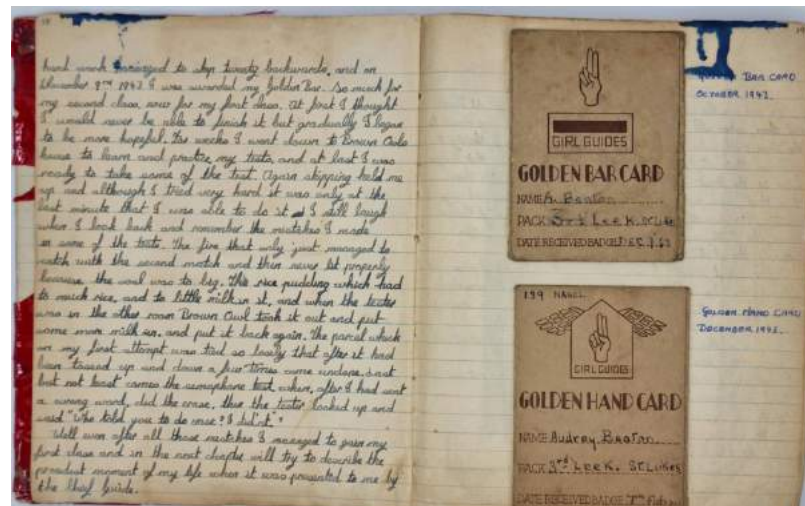 hard work managed to skip twenty backwards, and on
November 9nd 1942 I was awarded my Golden Bar. So much for
my second class, now for my first class. At first I thought
I would never be able to finish it but gradually I began
to be more hopeful. For weeks I went down to Brown Owls
house to learn and practice my tests, and at last I was
ready to take some of the test. Again skipping held me
up and although I tried very hard it was only at the
last minute that I was able to do it I still laugh
when I look back and remember the mistakes I made
in some of the tests. The fire that only just managed to
catch with the second match and then never lit properly
because the wood was to big. The rice pudding which had
to much rice, and to little milk in it, and when the tester
was in the other room Brown Owl took it out and put
some more milk in, and put it back again. The parcel which
on my first attempt was tied so loosely that after it had
been tossed up and down a few times came undone. Last
but not least comes the semaphore test when, after I had sent
a wrong word, did the erase, then the tester looked up and
said "Who told you to do once? I didn't."
Well even after all those mistakes I managed to gain my
first class and in the next chapter will try to describe the
proudest moment of my life when it was presented to me by
the Chief Guide.
GIRL GUIDES
GOLDEN BAR CARD
NAME A. Beaton
PACK 3rd Leek. St Lukes
DATE RECEIVED BADGE DEC.
GOLDEN BAR CARD
OCTOBER 1942.
139 HANDL
GIRL GUIDES
GOLDEN HAND CARD
NAME Audrey Beaton
PACK 3rd Leek. St Lukes
DATE RECEIVED BADGE 7th
GOLDEN HAND CARD
DECEMBER 1942.